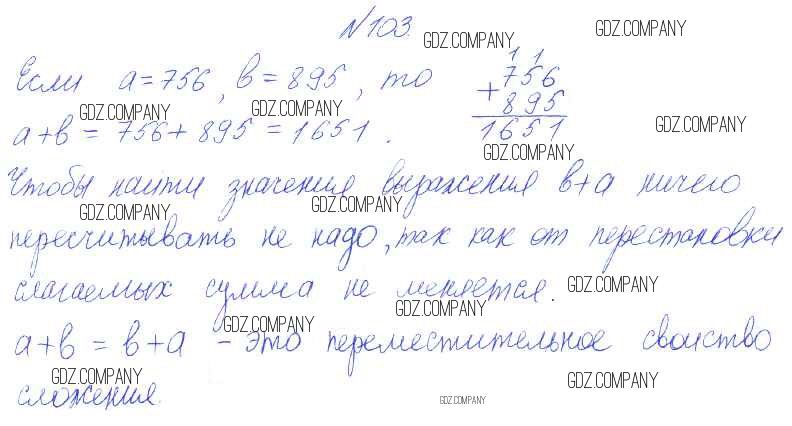 №103.
GDZ.COMPANY GDZ.COMPANY
Если а=756, в=895, то
1 1
756
+
895
1651
GDZ.COMPANY GDZ.COMPANY GDZ.COMPANY
а+в = 756+895 = 1651.
GDZ.COMPANY
Чтобы найти значения выражения в+а ничего
GDZ.COMPANY GDZ.COMPANY
пересчитывать не надо, так как от перестановки
слагаемых сумма не меняется.
GDZ.COMPANY
GDZ.COMPANY
GDZ.COMPANY
а+в = в+а - это переместительное свойство
GDZ.COMPANY GDZ.COMPANY
сложения.
GDZ.COMPANY